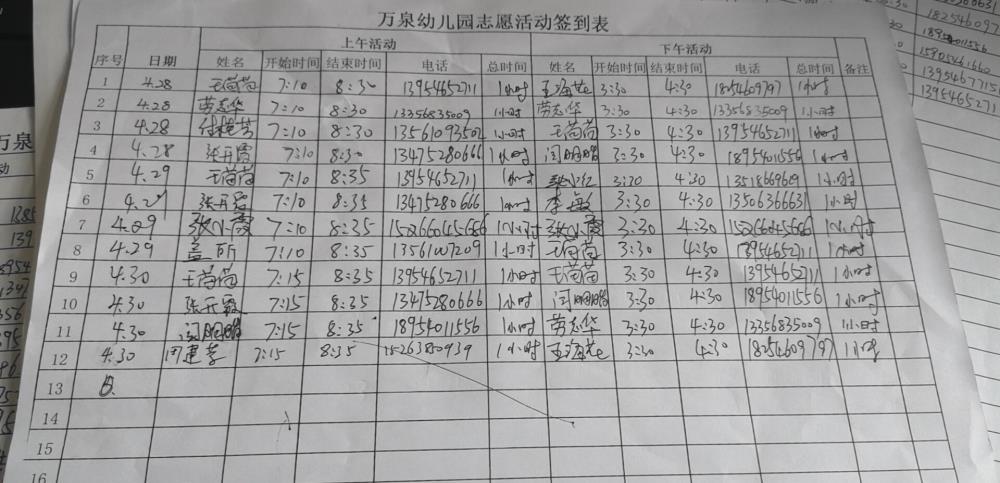 万泉幼儿园志愿活动签到表
序号 日期 上午活动 下午活动 备注
姓名 开始时间 结束时间 电话 总时间 姓名 开始时间 结束时间 电话 总时间
1 4.28 王苗苗 7:10 8:30 13954652711 1小时 3:30 4:30 18254609797 1小时
2 4.28 劳志华 7:10 8:30 13356835009 1小时 劳志华 3:30 4:30 13356835009 1小时
3 4.28 7:10 8:30 13561093502 1小时 王苗苗 3:30 4:30 13954652711 1小时
4 4.28 张开霞 7:10 8:30 13475280666 1小时 闫明明 3:30 4:30 18954011556 1小时
5 4.29 王苗苗 7:10 8:35 13954652711 1小时 3:30 4:30 13518669609 1小时
6 4.29 张开霞 7:10 8:35 13475280666 1小时 李敏 3:30 4:30 13506366631 1小时
7 4.29 张小霞 7:10 8:35 15266045666 1小时 张小霞 3:30 4:30 15266045666 1小时
8 4.29 7:10 8:35 13561007209 1小时 王苗苗 3:30 4:30 13954652711 1小时
9 4.30 王苗苗 7:15 8:35 13954652711 1小时 王苗苗 3:30 4:30 13954652711 1小时
10 4.30 张开霞 7:15 8:35 13475280666 1小时 3:30 4:30 18954011556 1小时
11 4.30 7:15 8:35 18954011556 1小时 劳志华 3:30 4:30 13356835009 1小时
12 4.30 周建孝 7:15 8:35 15263850939 1小时 3:30 4:30 18254609797 1小时
13
14
15
16